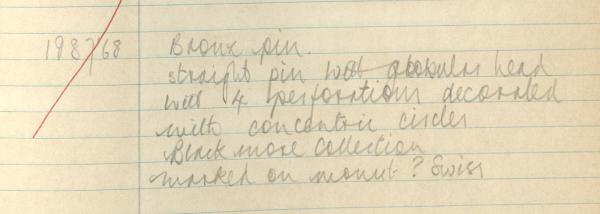 198768 Bronx pin.
straight pin with globular head
with 4 perforations decorated
with concentric circles
Blackmore Collection
marked on mount ? Swiss